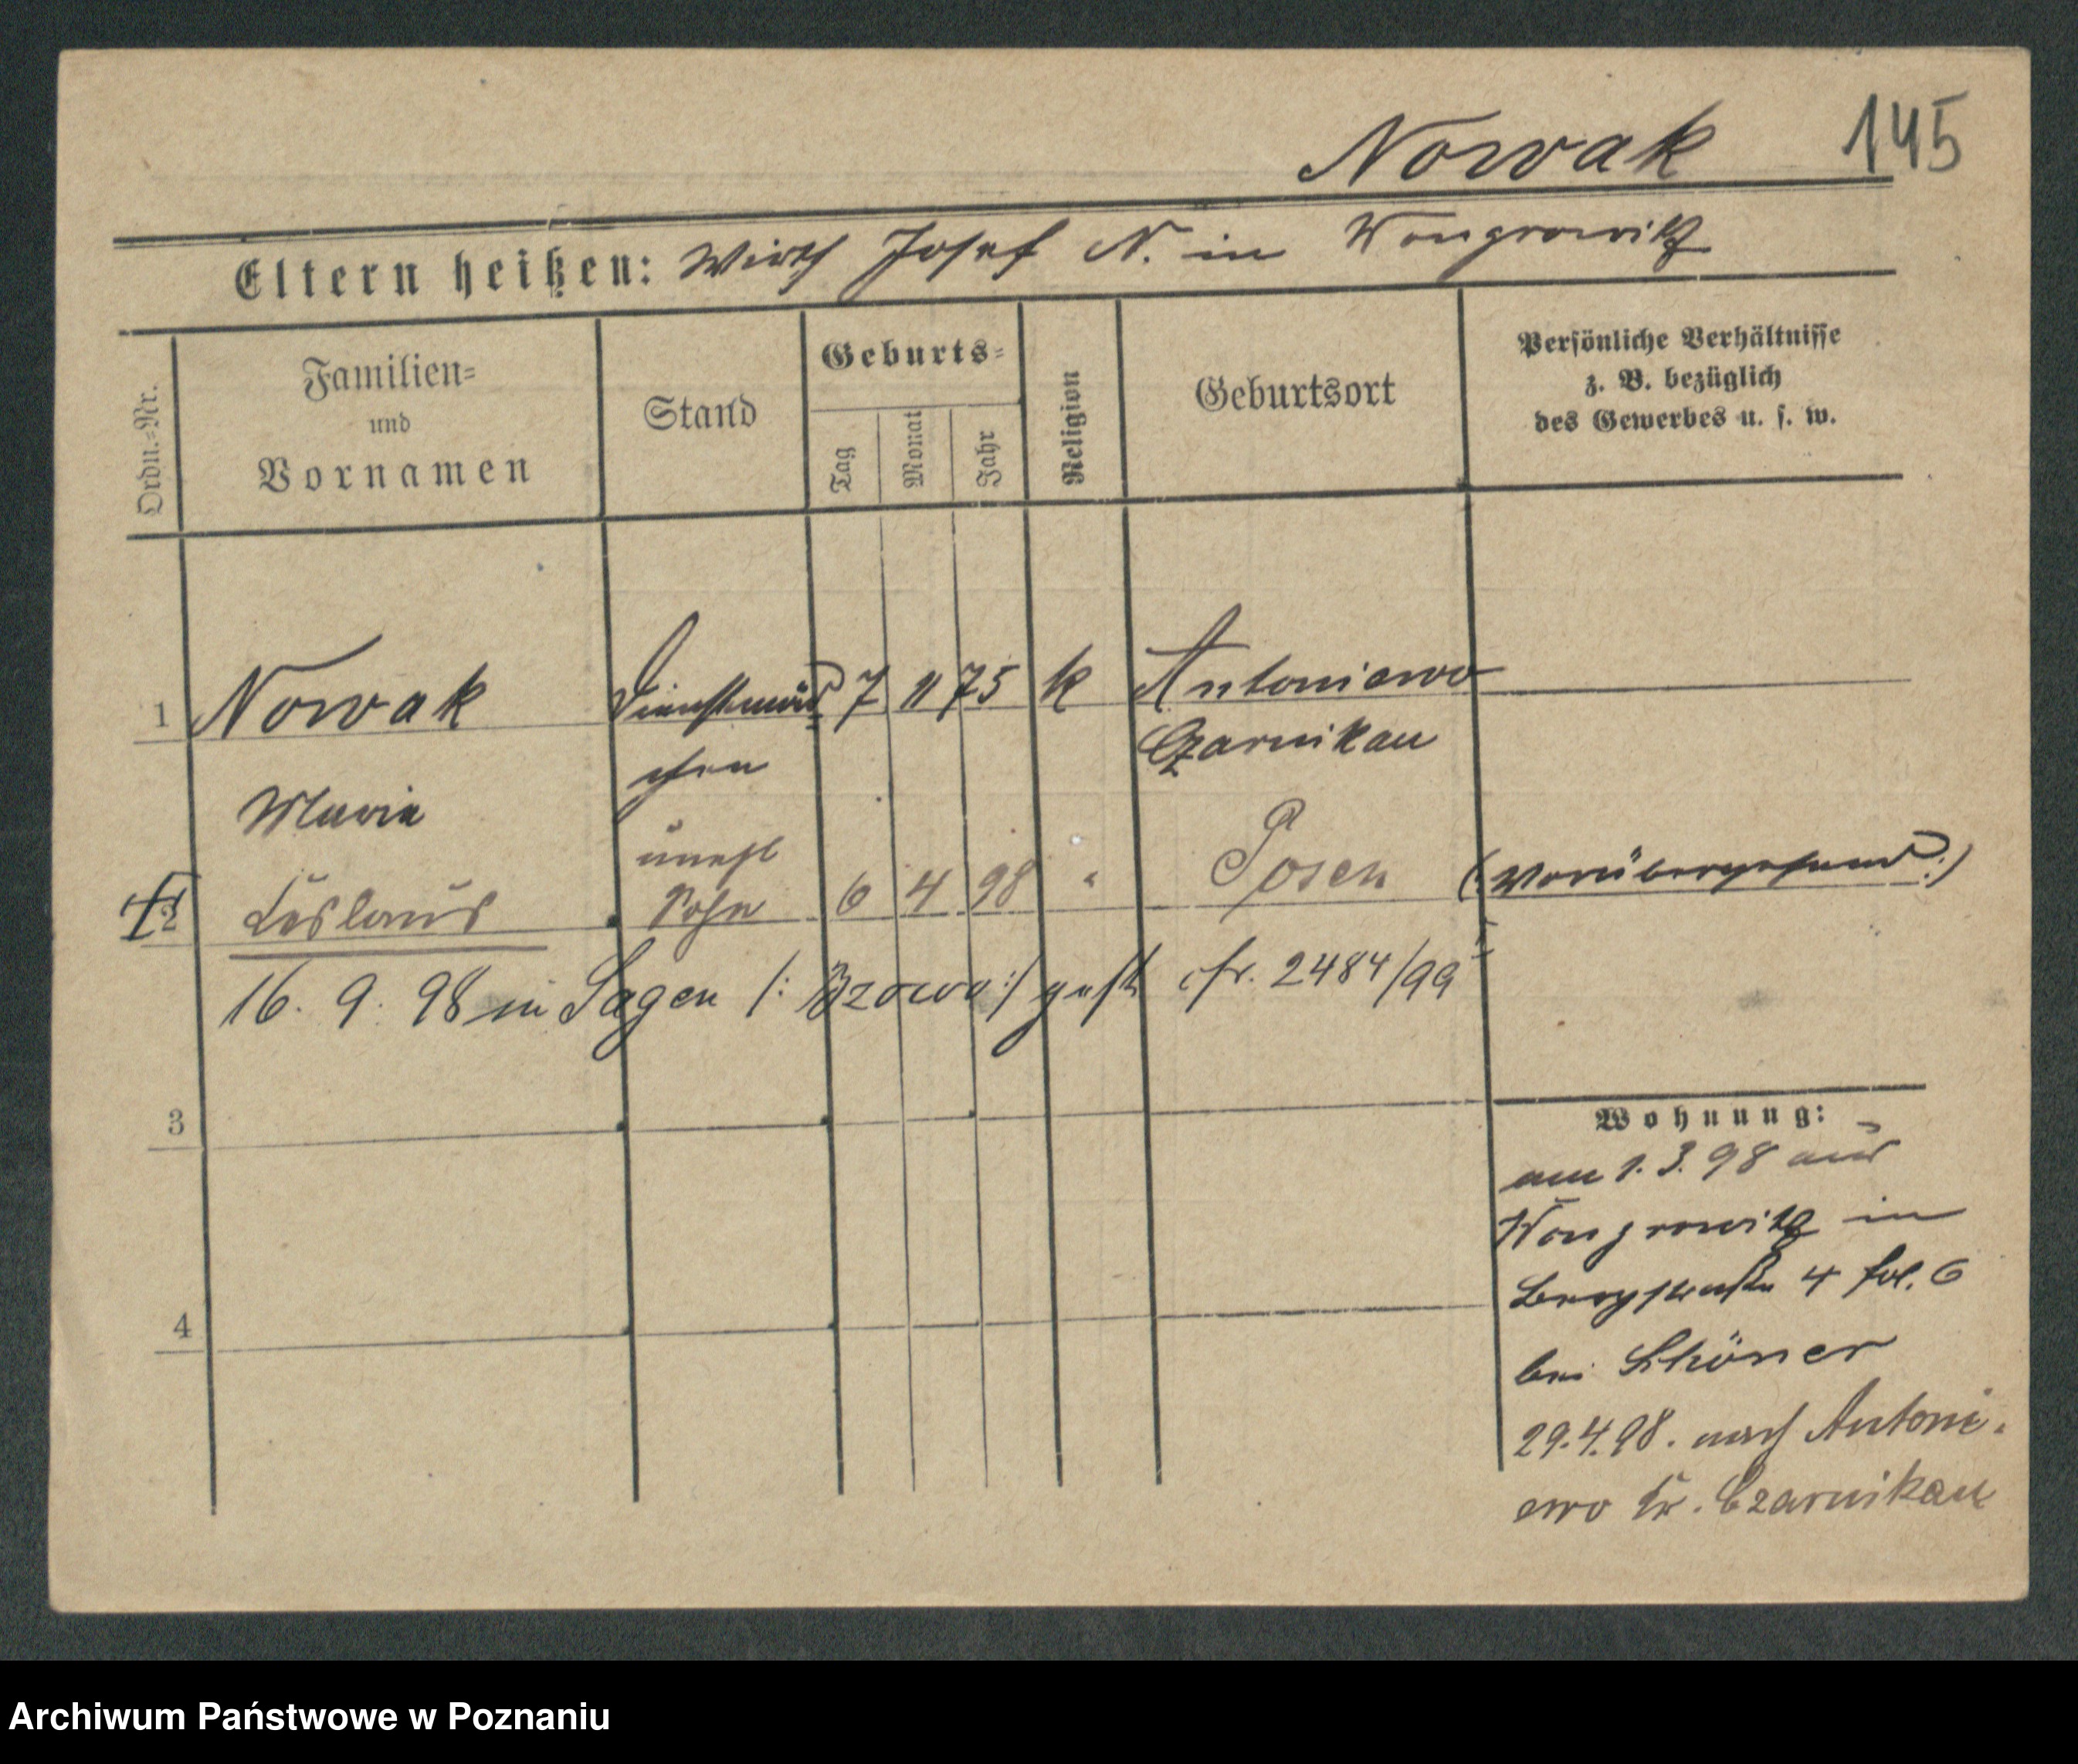 Nowak 145
Eltern heißen: Wirth Josef N. in Wongrowitz
Ordn.=Nr.
Familien=
und
Vornamen
Stand
Geburts=
Tag
Monat
Jahr
Religion
Geburtsort
Persönliche Verhältnisse
z. B. bezüglich
des Gewerbes u. s. w.
1 Nowak Dienstmäd 7 11 75 k Antoniewo
chen Czarnikau
Maria
unehl
2 Ceslaus Sohn 6 4 98 " Posen (: vorübergehend :)
16. 9. 98 in Sagen /: Bzowo :/ gest cfr. 2484/99
3
4
Wohnung:
am 1. 3. 98 aus
Wongrowitz in
Bergstraße 4 fol. 6
bei Schöner
29.4.98. nach Antoni-
ewo Kr. Czarnikau
Archiwum Państwowe w Poznaniu